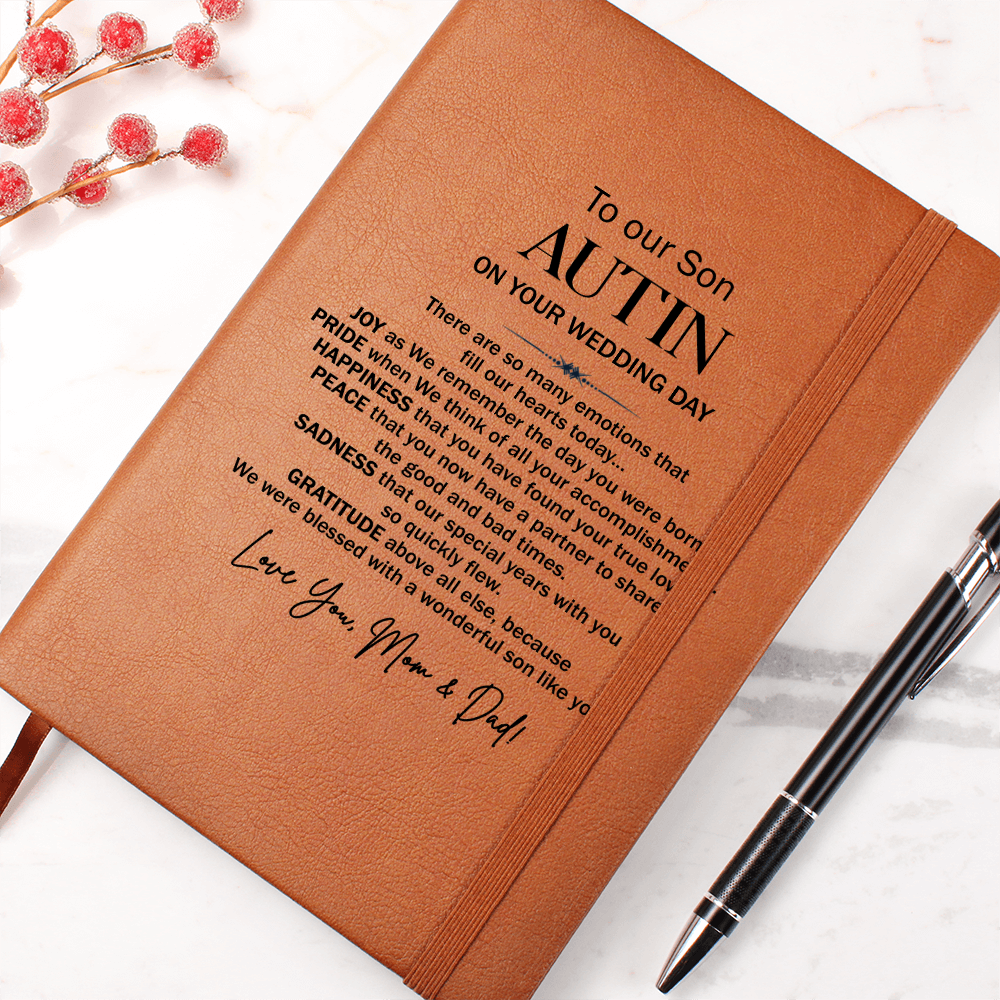 To our Son
AUTIN
ON YOUR WEDDING DAY
There are so many emotions that
fill our hearts today...
JOY as We remember the day you were born
PRIDE when We think of all your accomplishme
HAPPINESS that you have found your true lov
PEACE that you now have a partner to share
the good and bad times.
SADNESS that our special years with you
so quickly flew.
GRATITUDE above all else, because
We were blessed with a wonderful son like yo
Love You, Mom & Dad!